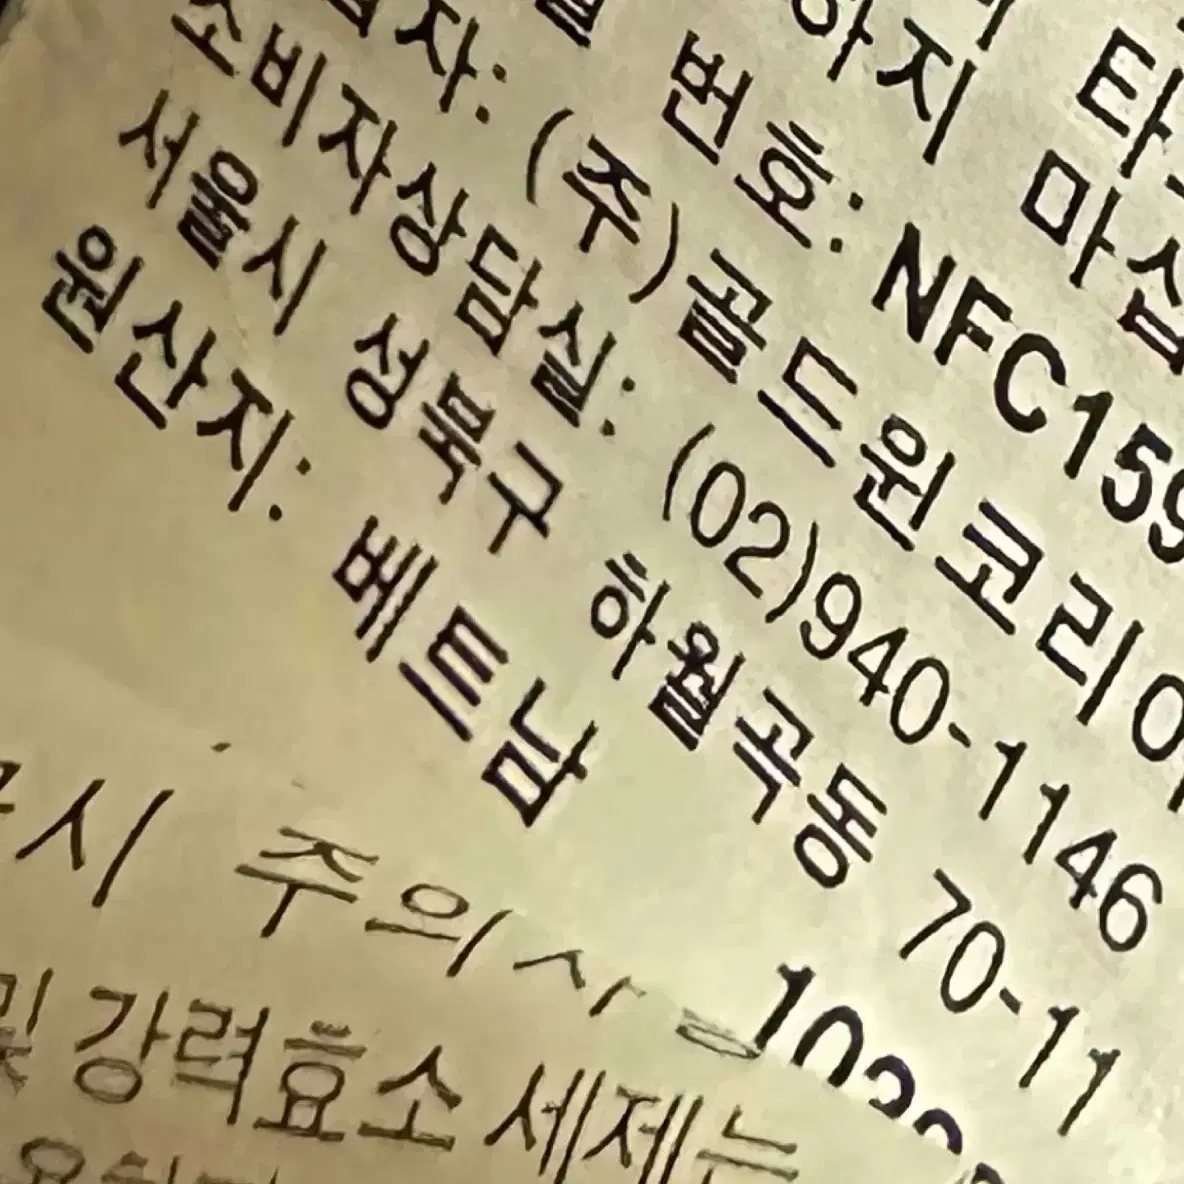 하지 마십
번호: NFC159
자: (주)골드윈코리아
소비자상담실: (02)940-1146
서울시 성북구 하월곡동 70-11
원산지: 베트남
시 주의사
및 강력효소 세제는